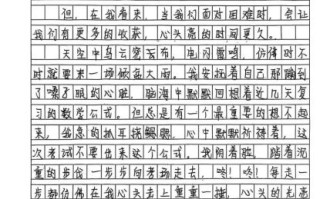 但，在我看来，当我们面对困难时，会让
我们有更多的收获，心头亮的时间更久。
天空中乌云密布，电闪雷鸣，仿佛时不
时就要来一场倾盆大雨。我安抚着自己那蹦到
了嗓子眼的心脏，脑海中默默回想着这几天复
习的数学公式。但总是有一个最重要的想不起
来，我急的抓耳挠腮，心中默默祈祷着，这
次考试不要出来这个公式。我阴着脸，踏着沉
重的步伐一步步向考场走去，咚！咚！每走一
步都仿佛在我心头击上重重一捶，心头的光亮